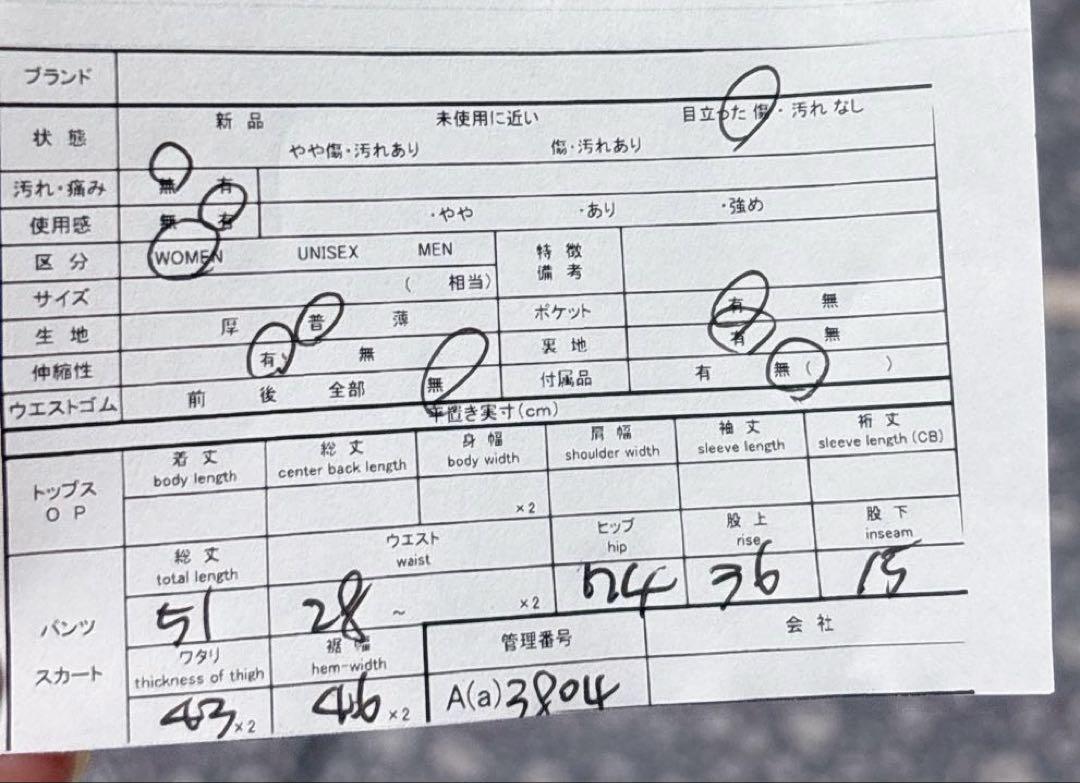 ブランド
状態
新品 未使用に近い 目立った傷・汚れなし
やや傷・汚れあり 傷・汚れあり
汚れ・痛み 無 有
使用感 無 有 ・やや ・あり ・強め
区分 WOMEN UNISEX MEN
特徴
備考
サイズ ( 相当)
生地 厚 普 薄
ポケット 有 無
伸縮性 有 無
裏地 有 無
ウエストゴム 前 後 全部 無
付属品 有 無 ( )
平置き実寸(cm)
トップス
OP
着丈 総丈 身幅 肩幅 袖丈 裄丈
body length center back length body width shoulder width sleeve length sleeve length (CB)
×2
パンツ
スカート
総丈 ウエスト ヒップ 股上 股下
total length waist hip rise inseam
51 28 ~ ×2 36 15
ワタリ 裾幅 管理番号 会社
thickness of thigh hem-width
43 ×2 46 ×2 A(a)3804